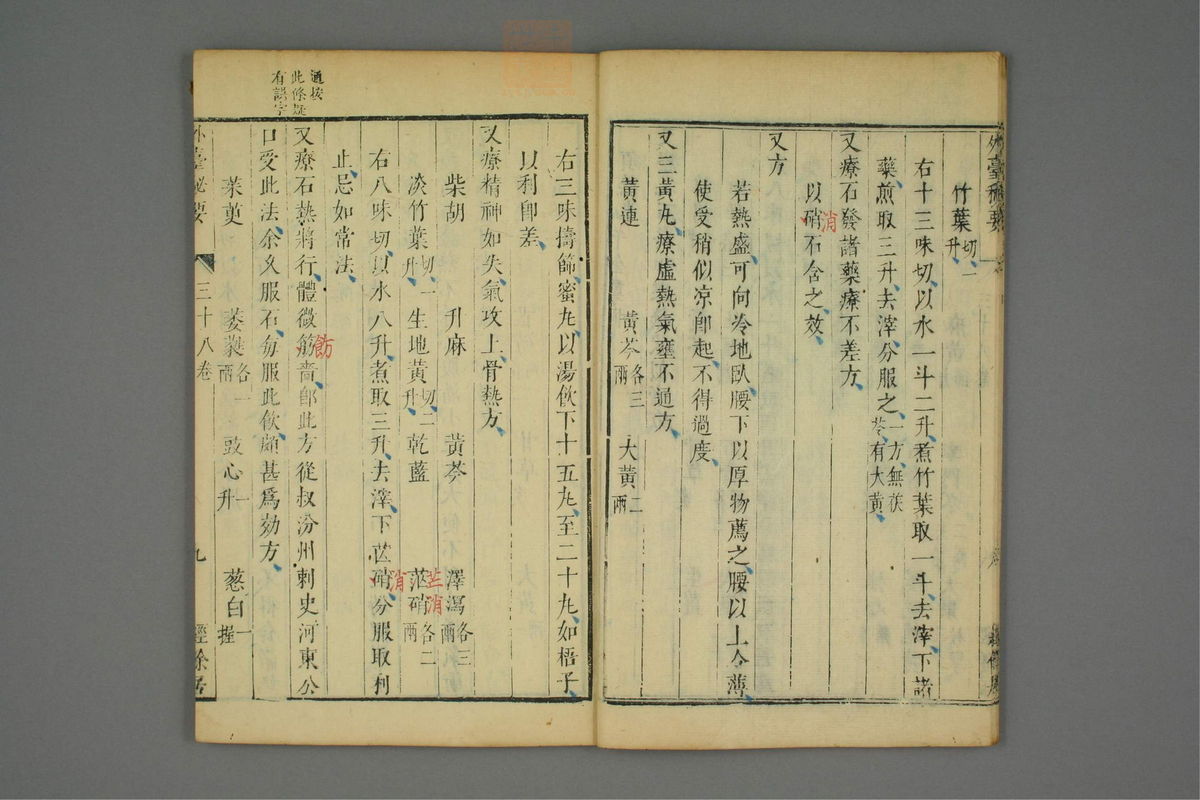 外臺秘要
竹葉切一升
右十三味切以水一斗二升煮竹葉取一斗去滓下諸
藥煎取三升去滓分服之一方無茯苓有大黃
又療石發諸藥療不差方
以硝石含之效
消
又方
若熱盛可向冷地臥腰下以厚物薦之腰以上令薄
使受稍似凉即起不得過度
又三黃丸療虛熱氣壅不通方
黃連 黃芩各三兩 大黃二兩
右三味擣篩蜜丸以湯飲下十五丸至二十丸如梧子
以利即差
又療精神如失氣攻上骨熱方
柴胡 升麻 黃芩 澤瀉各三兩
淡竹葉切一升 生地黃切二升 乾藍 芒硝各二兩
芒消
右八味切以水八升煮取三升去滓下芒硝分服取利
消
止忌如常法
又療石熱將行體微筋嗇即此方從叔汾州刺史河東公
飭
口受此法余久服石每服此飲頗甚爲効方
茱萸 萎蕤各一兩 豉心一升 葱白一握
外臺秘要 三十八卷 九 經餘居
通按
此條疑
有誤字